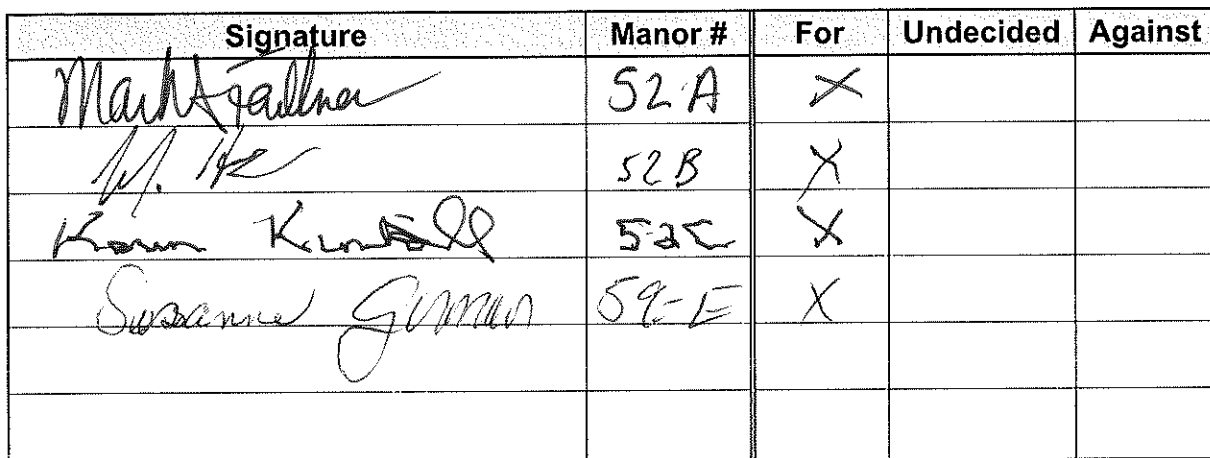 Signature Manor # For Undecided Against
Mark 52-A X
M. 52B X
Karen Kimball X
Susanne 59-E X